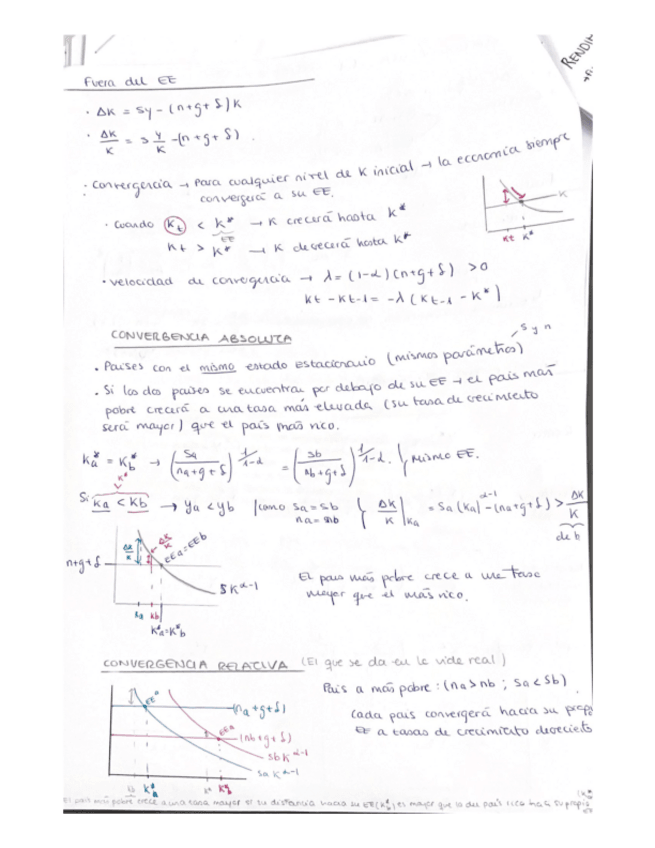 RENDIM
Fuera del EE
· ΔK = sy - (n+g+δ)K
· ΔK/K = s y/K - (n+g+δ).
· Convergencia → Para cualquier nivel de K inicial → la economía siempre
convergerá a su EE.
· Cuando Kt < K* → K crecerá hasta K*
EE
Kt > K* → K decrecerá hasta K*
K
Kt K*
· velocidad de convergencia → λ = (1-α)(n+g+δ) > 0
Kt - Kt-1 = -λ (Kt-1 - K*)
CONVERGENCIA ABSOLUTA
s y n
· Países con el mismo estado estacionario (mismos parámetros)
· Si los dos países se encuentran por debajo de su EE → el país más
pobre crecerá a una tasa más elevada (su tasa de crecimiento
será mayor) que el país más rico.
Ka* = Kb* → (sa/na+g+δ)^1/1-α = (sb/nb+g+δ)^1/1-α. mismo EE.
K*
Si Ka < Kb → ya < yb como sa = sb na = nb { ΔK/K |Ka = sa (Ka)^α-1 - (na+g+δ) > ΔK/K
de b
ΔK/K ΔK/K EEa=EEb
n+g+δ
sK^α-1
Ka Kb
Ka*=Kb*
El país más pobre crece a una tasa
mayor que el más rico.
CONVERGENCIA RELATIVA (El que se da en la vida real)
País a más pobre: (na>nb ; sa<sb)
Cada país convergerá hacia su propi
EE a tasas de crecimiento decrecients
EEa
(na+g+δ)
EEa
(nb+g+δ)
sb K^α-1
sa K^α-1
Ka* Kb*
El país más pobre crece a una tasa mayor si su distancia hacia su EE (K*) es mayor que la del país rico hacia su propio
EE